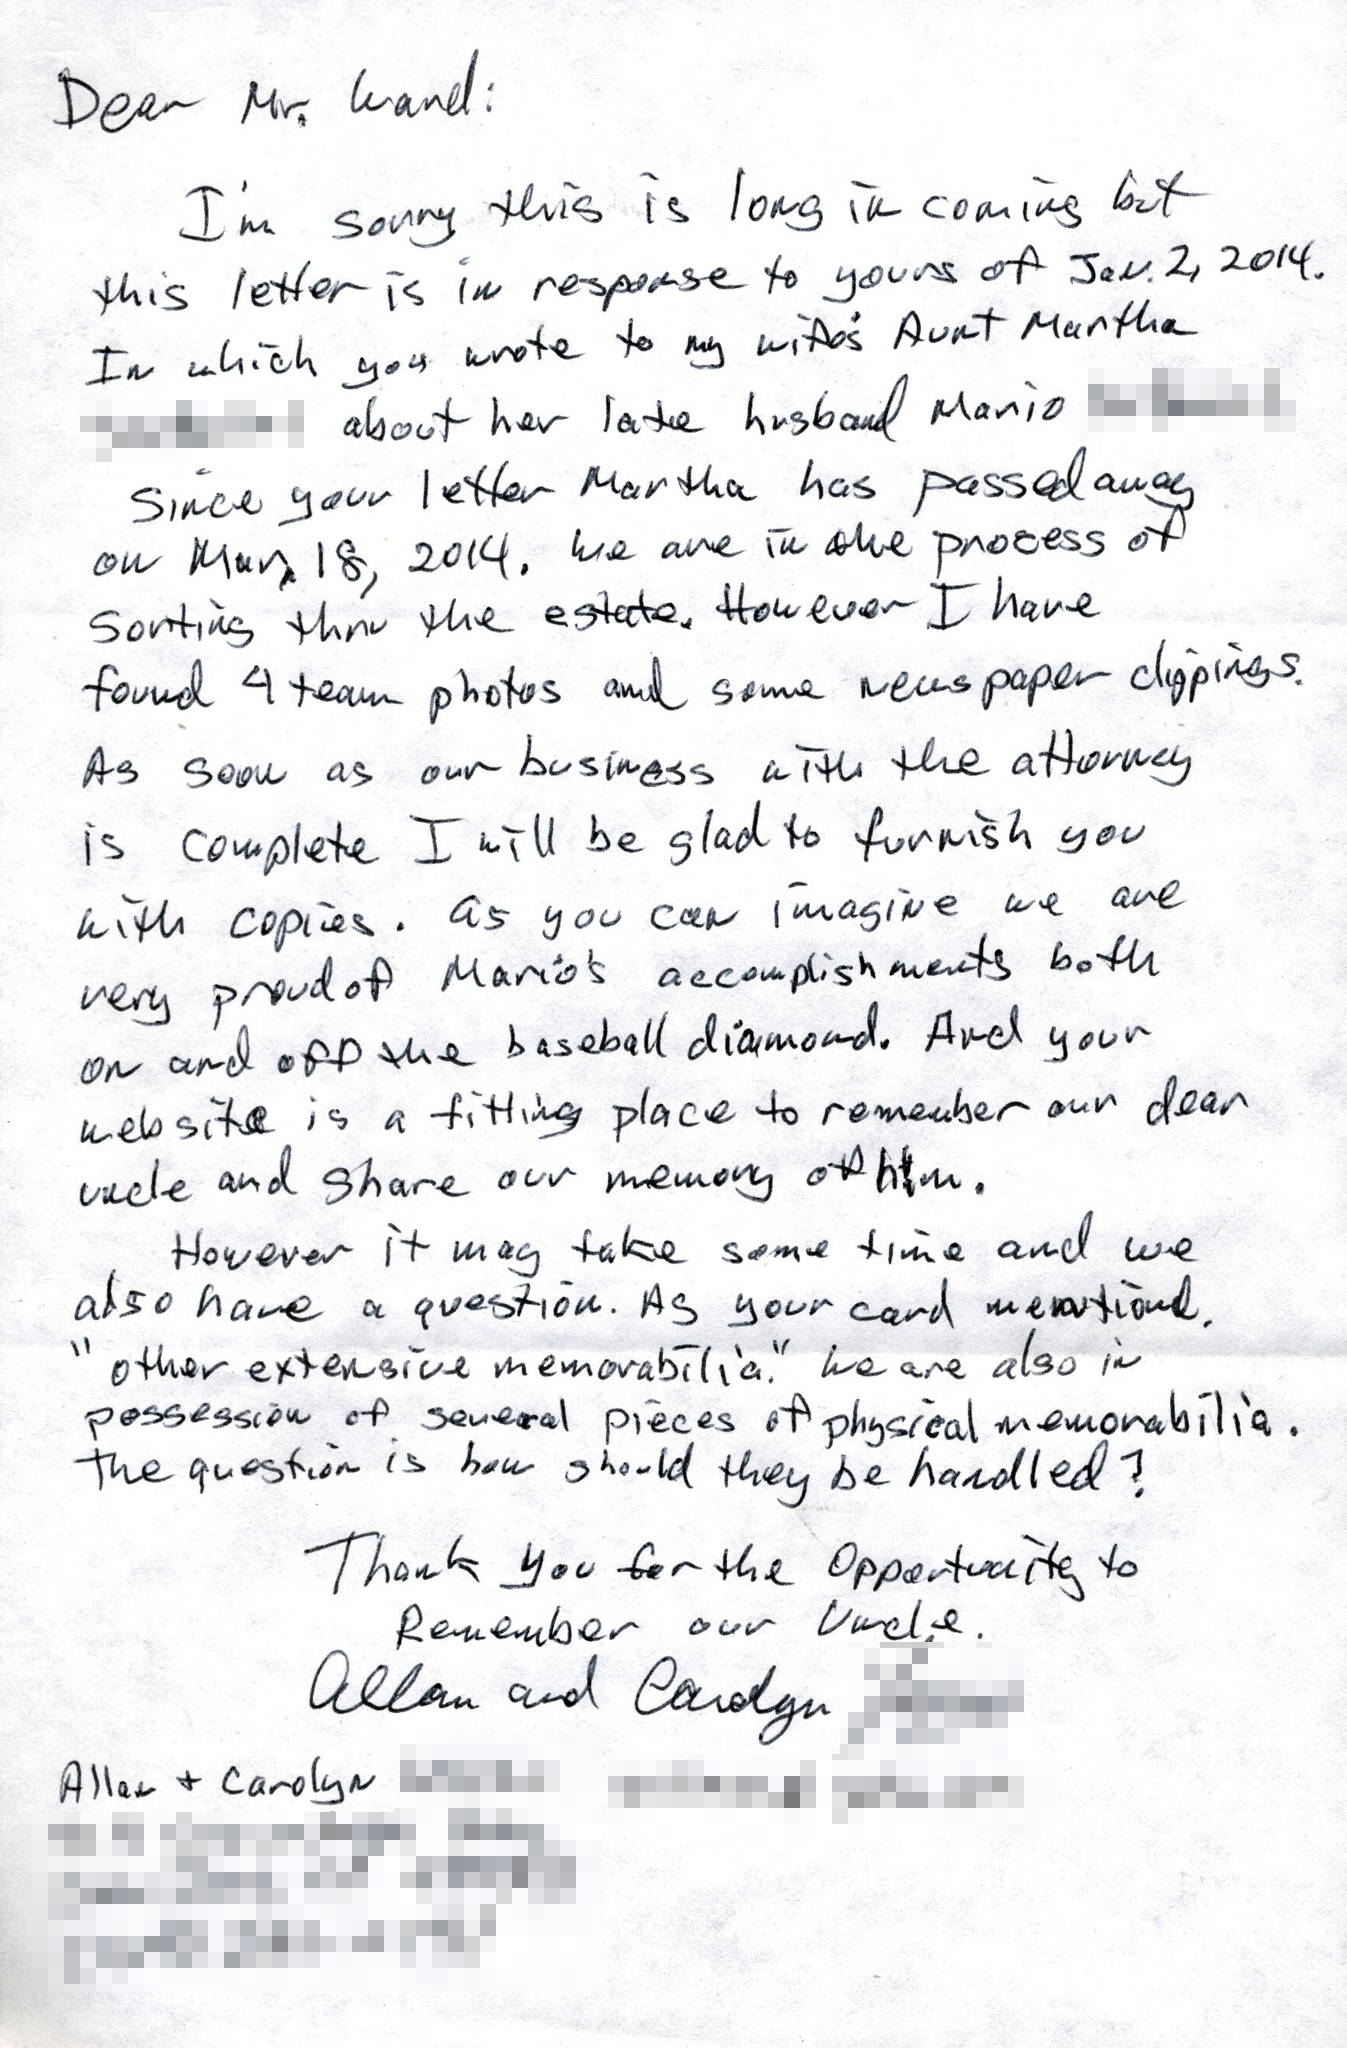 Dear Mr. Wand:
I'm sorry this is long in coming but
this letter is in response to yours of Jan. 2, 2014.
In which you wrote to my wife's Aunt Martha
about her late husband Mario
Since your letter Martha has passed away
on Mar. 18, 2014. We are in the process of
sorting thru the estate. However I have
found 4 team photos and some newspaper clippings.
As soon as our business with the attorney
is complete I will be glad to furnish you
with copies. As you can imagine we are
very proud of Mario's accomplishments both
on and off the baseball diamond. And your
website is a fitting place to remember our dear
uncle and share our memory of him.
However it may take some time and we
also have a question. As your card mentiond.
"other extensive memorabilia." We are also in
possession of several pieces of physical memorabilia.
The question is how should they be handled?
Thank you for the Opportunity to
Remember our Uncle.
Allan and Carolyn
Allan + Carolyn